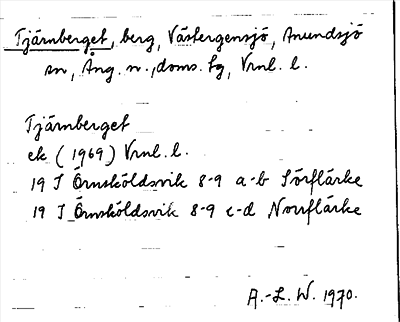 Tjärnberget, berg, Västergensjö, Anundsjö
sn, Ång. n., doms. tg, Vrnl. l.
Tjärnberget
ek (1969) Vrnl. l.
19 I Örnsköldsvik 8-9 a-b Sörflärke
19 I Örnsköldsvik 8-9 c-d Norrflärke
A.-L. W. 1970.